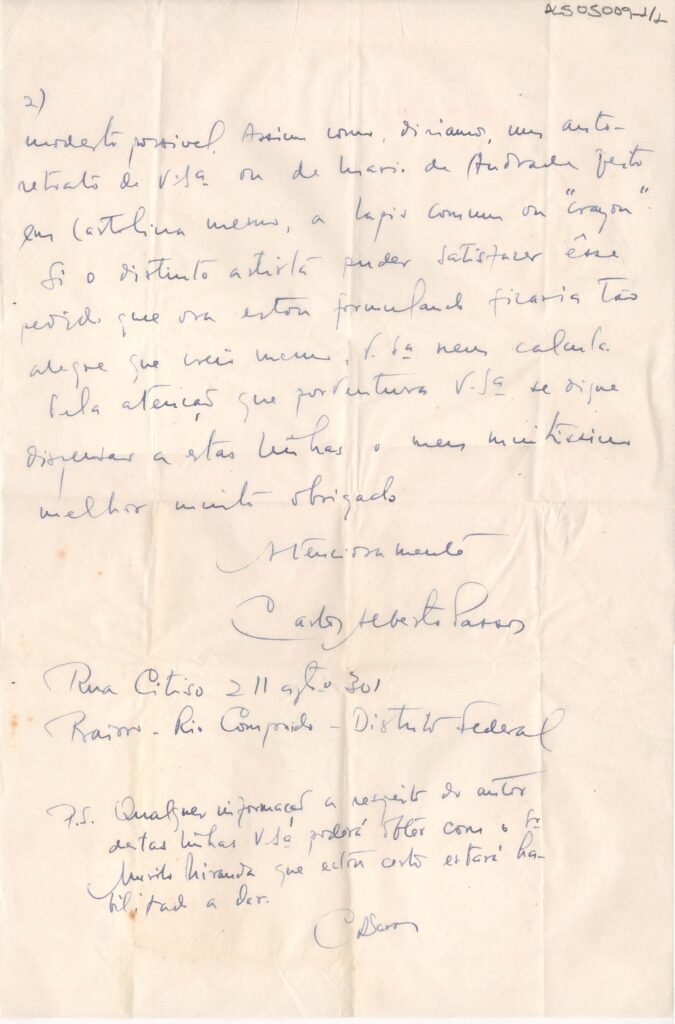 ALS05009-2/2
2)
modesto possivel. Assim como, diriamos, um auto-
retrato de V.Sª ou de Mario de Andrade feito
em cartolina mesmo, a lapis commum ou "crayon".
Si o distinto artista puder satisfazer êsse
pedido que ora estou formulando ficaria tão
alegre que creio mesmo, V. Sª nem calcula.
Pela atenção que porventura V.Sª se digne
dispensar a estas linhas o meu muitissimo
melhor muito obrigado
Atenciosamente
Carlos Alberto Passos
Rua Citiso 211 apto 301
Bairro - Rio Comprido - Distrito Federal
P.S. Qualquer informação a respeito do autor
destas linhas V.Sª poderá obter com o Sr
Murilo Miranda que estou certo estará ha-
bilitado a dar.
CAPassos